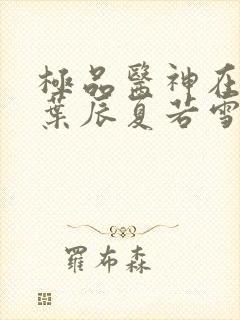 極品醫神在
葉辰夏若雪
羅布森